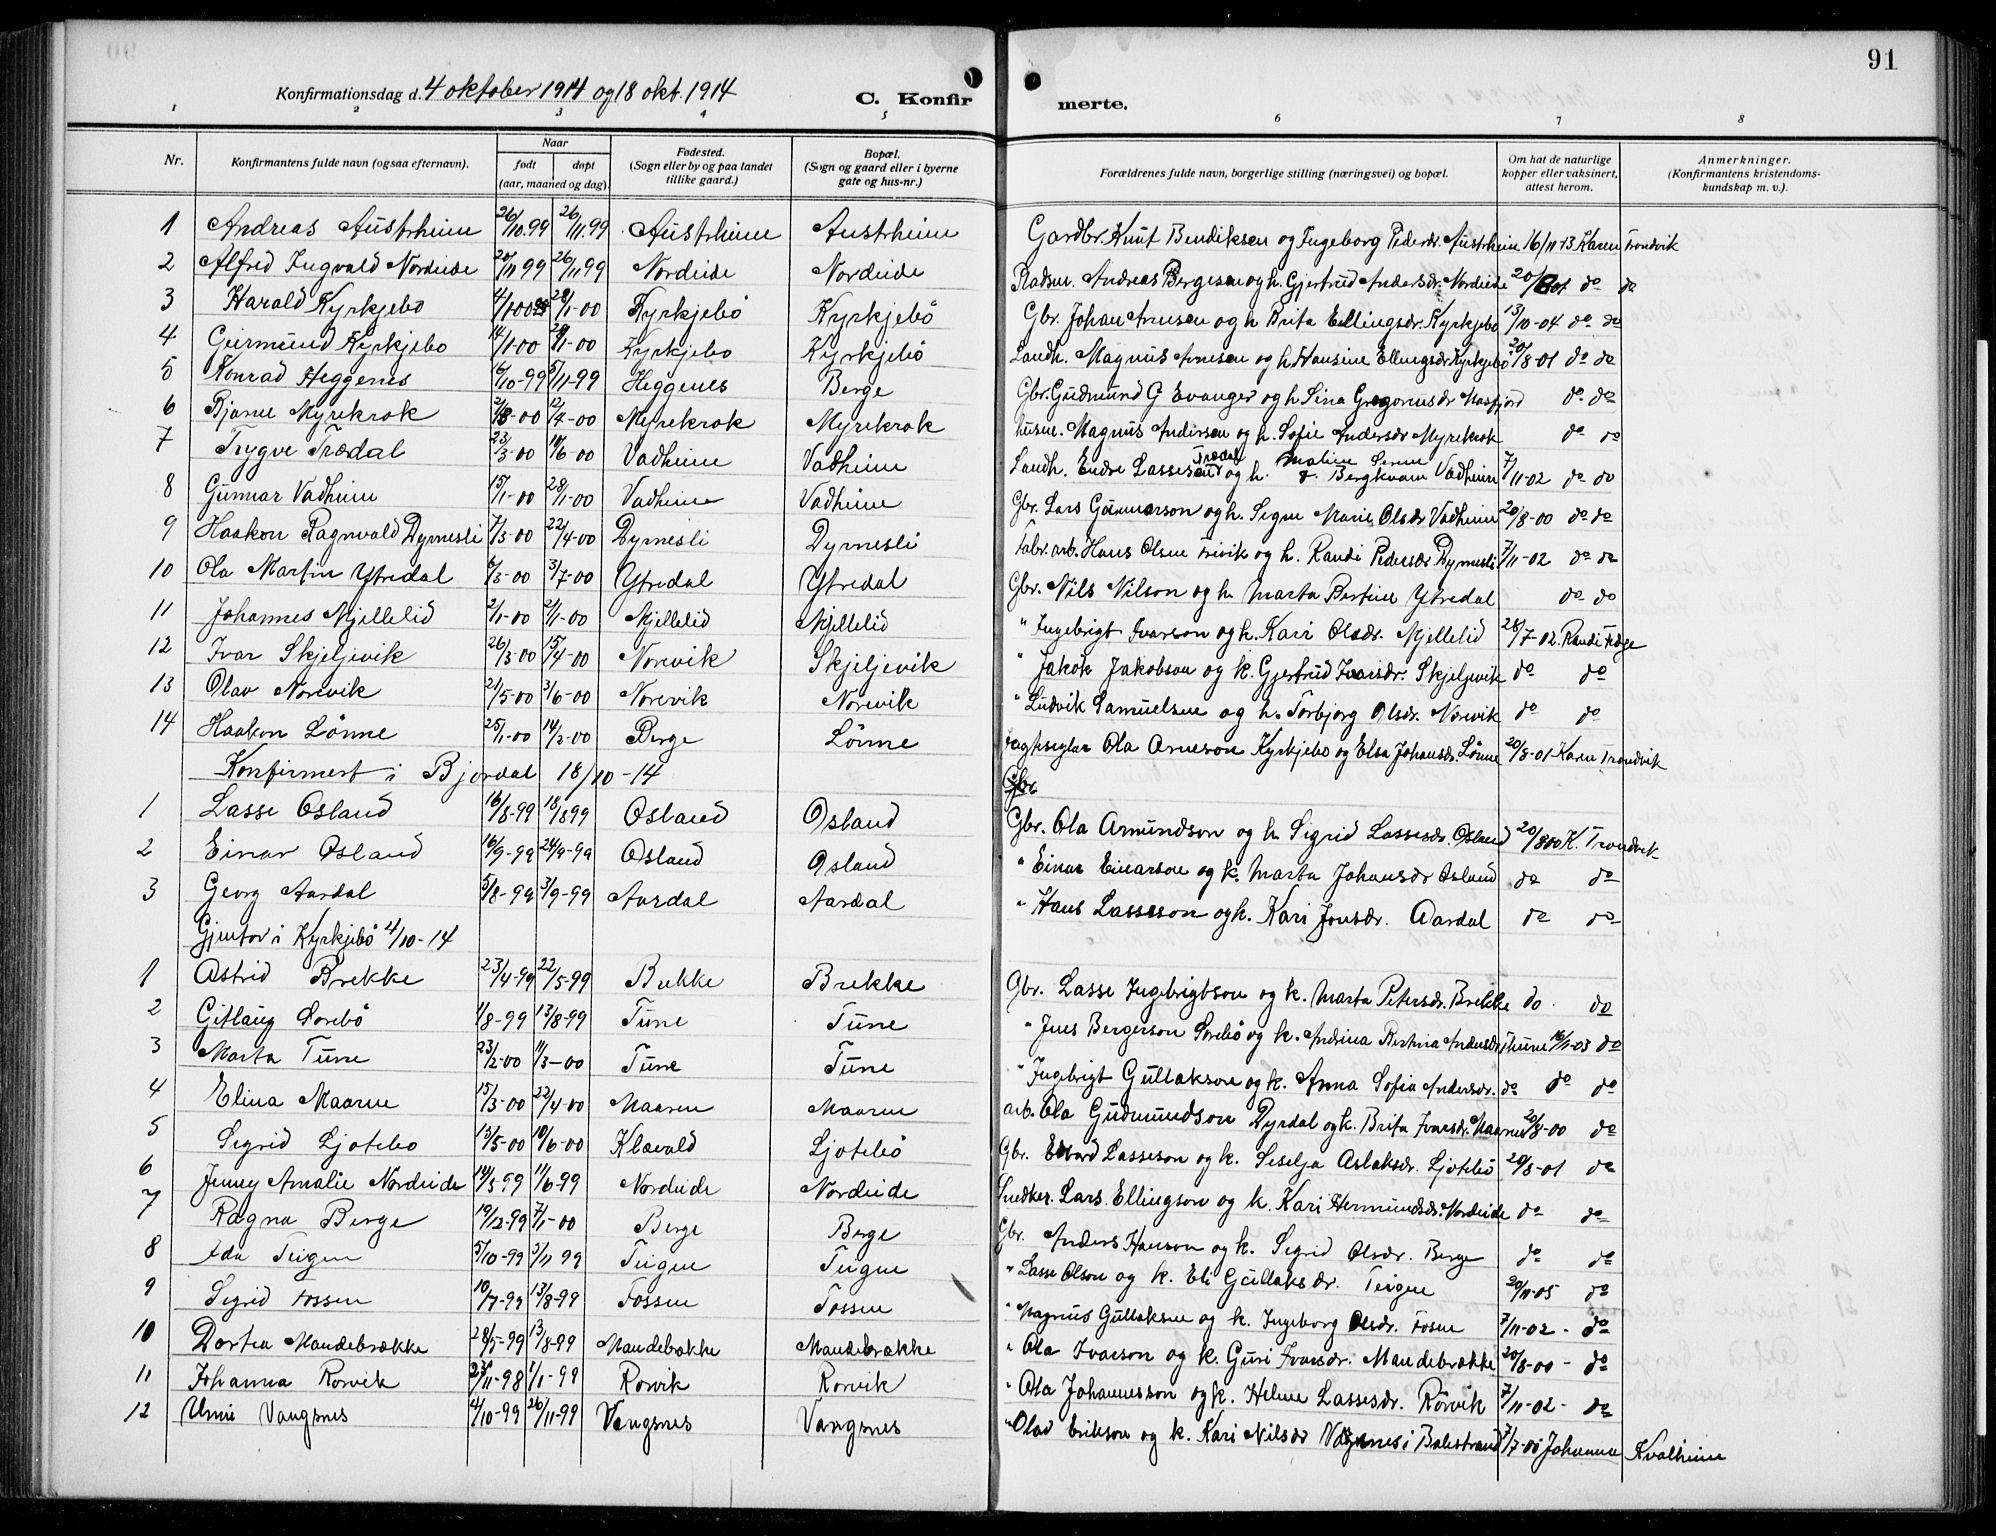 91
Konfirmationsdag d. 4 oktober 1914 og 18 okt. 1914 C. Konfirmerte.
1 2 3 4 5 6 7 8
Nr. Konfirmantens fulde navn (ogsaa efternavn). Naar født døpt (aar, maaned og dag). Fødested. (Sogn eller by og paa landet tillike gaard.) Bopæl. (Sogn og gaard eller i byerne gate og hus-nr.) Forældrenes fulde navn, borgerlige stilling (næringsvei) og bopæl. Om hat de naturlige kopper eller vaksinert, attest herom. Anmerkninger. (Konfirmantens kristendoms-kundskap m. v.).
1 Andreas Austrheim 26/10.99 26/11.99 Austrheim Austrheim Gardbr. Knut Bendiksen og Ingeborg Pedersdr. Austrheim 16/11 13 Karen Trondvik
2 Alfred Ingvald Nordeide 20/11 99 26/11 99 Nordeide Nordeide Pladsm. Andreas Bergesen og h. Gjertrud Andersdr. Nordeide 20/8 01 do do
3 Harald Kyrkjebø 4/1 00 28/1-00 Kyrkjebö Kyrkjebö Gbr. Johan Arnesen og h Brita Ellingsdr. Kyrkjebö 13/10-04 do do
4 Geirmund Kyrkjebo 14/1-00 28/1-00 Kyrkjebo Kyrkjebö Landh. Magnus Arnesen og h. Hansine Ellingsdr Kyrkjebö 20/8-01 do do
5 Konrad Heggenes 6/10-99 5/11-99 Heggenes Berge Gbr. Gudmund G Evanger og h Sina Gregoriusdr Masfjord do do
6 Bjarne Myrekrok 2/3-00 12/4-00 Myrekrok Myrekrok husm. Magnus Andersen og h. Sofie Andersdr Myrekrok do do
7 Trygve Trædal 23/3-00 14/6-00 Vadheim Vadheim Landh. Endre Lassesen Trædal og h. Maline Serine d. Bergkvam Vadheim 7/11-02 do do
8 Gunnar Vadheim 15/1-00 28/1-00 Vadheim Vadheim Gbr. Lars Gunnarson og h. Signe Marie Olsdr Vadheim 20/8-00 do do
9 Haakon Ragnvald Dyrnesli 7/3-00 22/4-00 Dyrnesli Dyrnesli Fabr. arb. Hans Olsen Trivik og h. Randi Pedersdr Dyrnesli 7/11-02 do do
10 Ola Martin Ytredal 6/3-00 3/7-00 Ytredal Ytredal Gbr. Nils Nilson og h. Marta Bertine Ytredal do do
11 Johannes Mjellelid 2/1-00 21/1-00 Mjellelid Mjellelid " Ingebrigt Ivarson og h. Kari Olsdr. Mjellelid 28/7-02. Randi
12 Ivar Skjeljevik 26/3-00 15/4-00 Norevik Skjeljevik " Jakob Jakobson og k. Gjertrud Ivarsdr. Skjeljevik do do
13 Olav Norevik 21/5-00 3/6-00 Norevik Norevik " Ludvik Samuelsen og h. Torbjorg Olsdr. Norevik do do
14 Haakon Lönne 25/1-00 14/3-00 Berge Lönne Ola Arneson Kyrkjebo og Elsa Johansdr. Lönne 20/8-01 Karen Trondvik
Konfirmert i Bjordal 18/10-14
Gbr
1 Lasse Osland 16/8-99 18/8 99 Osland Osland Gbr. Ola Amundson og h Sigrid Lassesdr. Osland 20/8 00 K. Trondvik
2 Einar Osland 16/9-99 24/9-99 Osland Osland " Einar Einarson og k. Marta Johansdr Osland do do
3 Georg Aardal 5/8-99 3/9-99 Aardal Aardal " Hans Lasseson og k. Kari Jonsdr. Aardal do do
Gjentor i Kyrkjebö 4/10-14
1 Astrid Brekke 23/4-99 22/5-99 Brekke Brekke Gbr. Lasse Ingebrigtson og k. Marta Petersdr. Brekke do do
2 Gitlaug Sorebö 1/8-99 13/8-99 Tune Tune " Jens Bergerson Sorebö og k. Andrina Bertina Andersdr. Thune 16/11-03 do
3 Marta Tune 23/2-00 11/3-00 Tune Tune " Ingebrigt Gullakson og k. Anna Sofia Andersdr. do do do
4 Elina Maaren 15/3-00 22/4-00 Maaren Maaren arb. Ola Gudmundson Dyrdal og k. Brita Ivarsdr. Maaren 20/8-00 do
5 Sigrid Ljotebo 13/5-00 10/6-00 Klævold Ljotebö Gbr. Edvard Lasseson og k. Seselja Aslaksdr. Ljotebö 20/8-01 do
6 Jenny Amalie Nordeide 14/5 99 11/6-99 Nordeide Nordeide Snedker. Lars Ellingson og k. Kari Hermundsdr. Nordeide do do
7 Ragna Berge 19/12-99 7/1-00 Berge Berge Gbr. Anders Hanson og k. Sigrid Olsdr. Berge do do
8 Ida Teigen 5/10-99 5/11 99 Teigen Teigen " Lasse Olson og k. Eli Gullaksdr. Teigen 20/11-05 do
9 Sigrid Fossen 10/7-99 13/8-99 Fossen Fossen " Magnus Gullaksen og k. Ingeborg Olsdr. Fosse 7/11-02 - do
10 Dortea Mandebrække 28/5-99 13/8-99 Mandebrække Mandebrække " Ola Ivarson og k. Guri Ivarsdr. Mandebrække 20/8-00 - do
11 Johanna Rorvik 23/11-98 1/1-99 Rorvik Rorvik " Ola Johannesson og k. Helene Lassesdr. Rörvik 7/11-02 - do
12 Unni Vangsnes 4/10-99 26/11-99 Vangsnes Vangsnes " Olav Erikson og k. Kari Nilsdr Vagnnes i Balestrand 7/7-00 Johanne Kvalheim